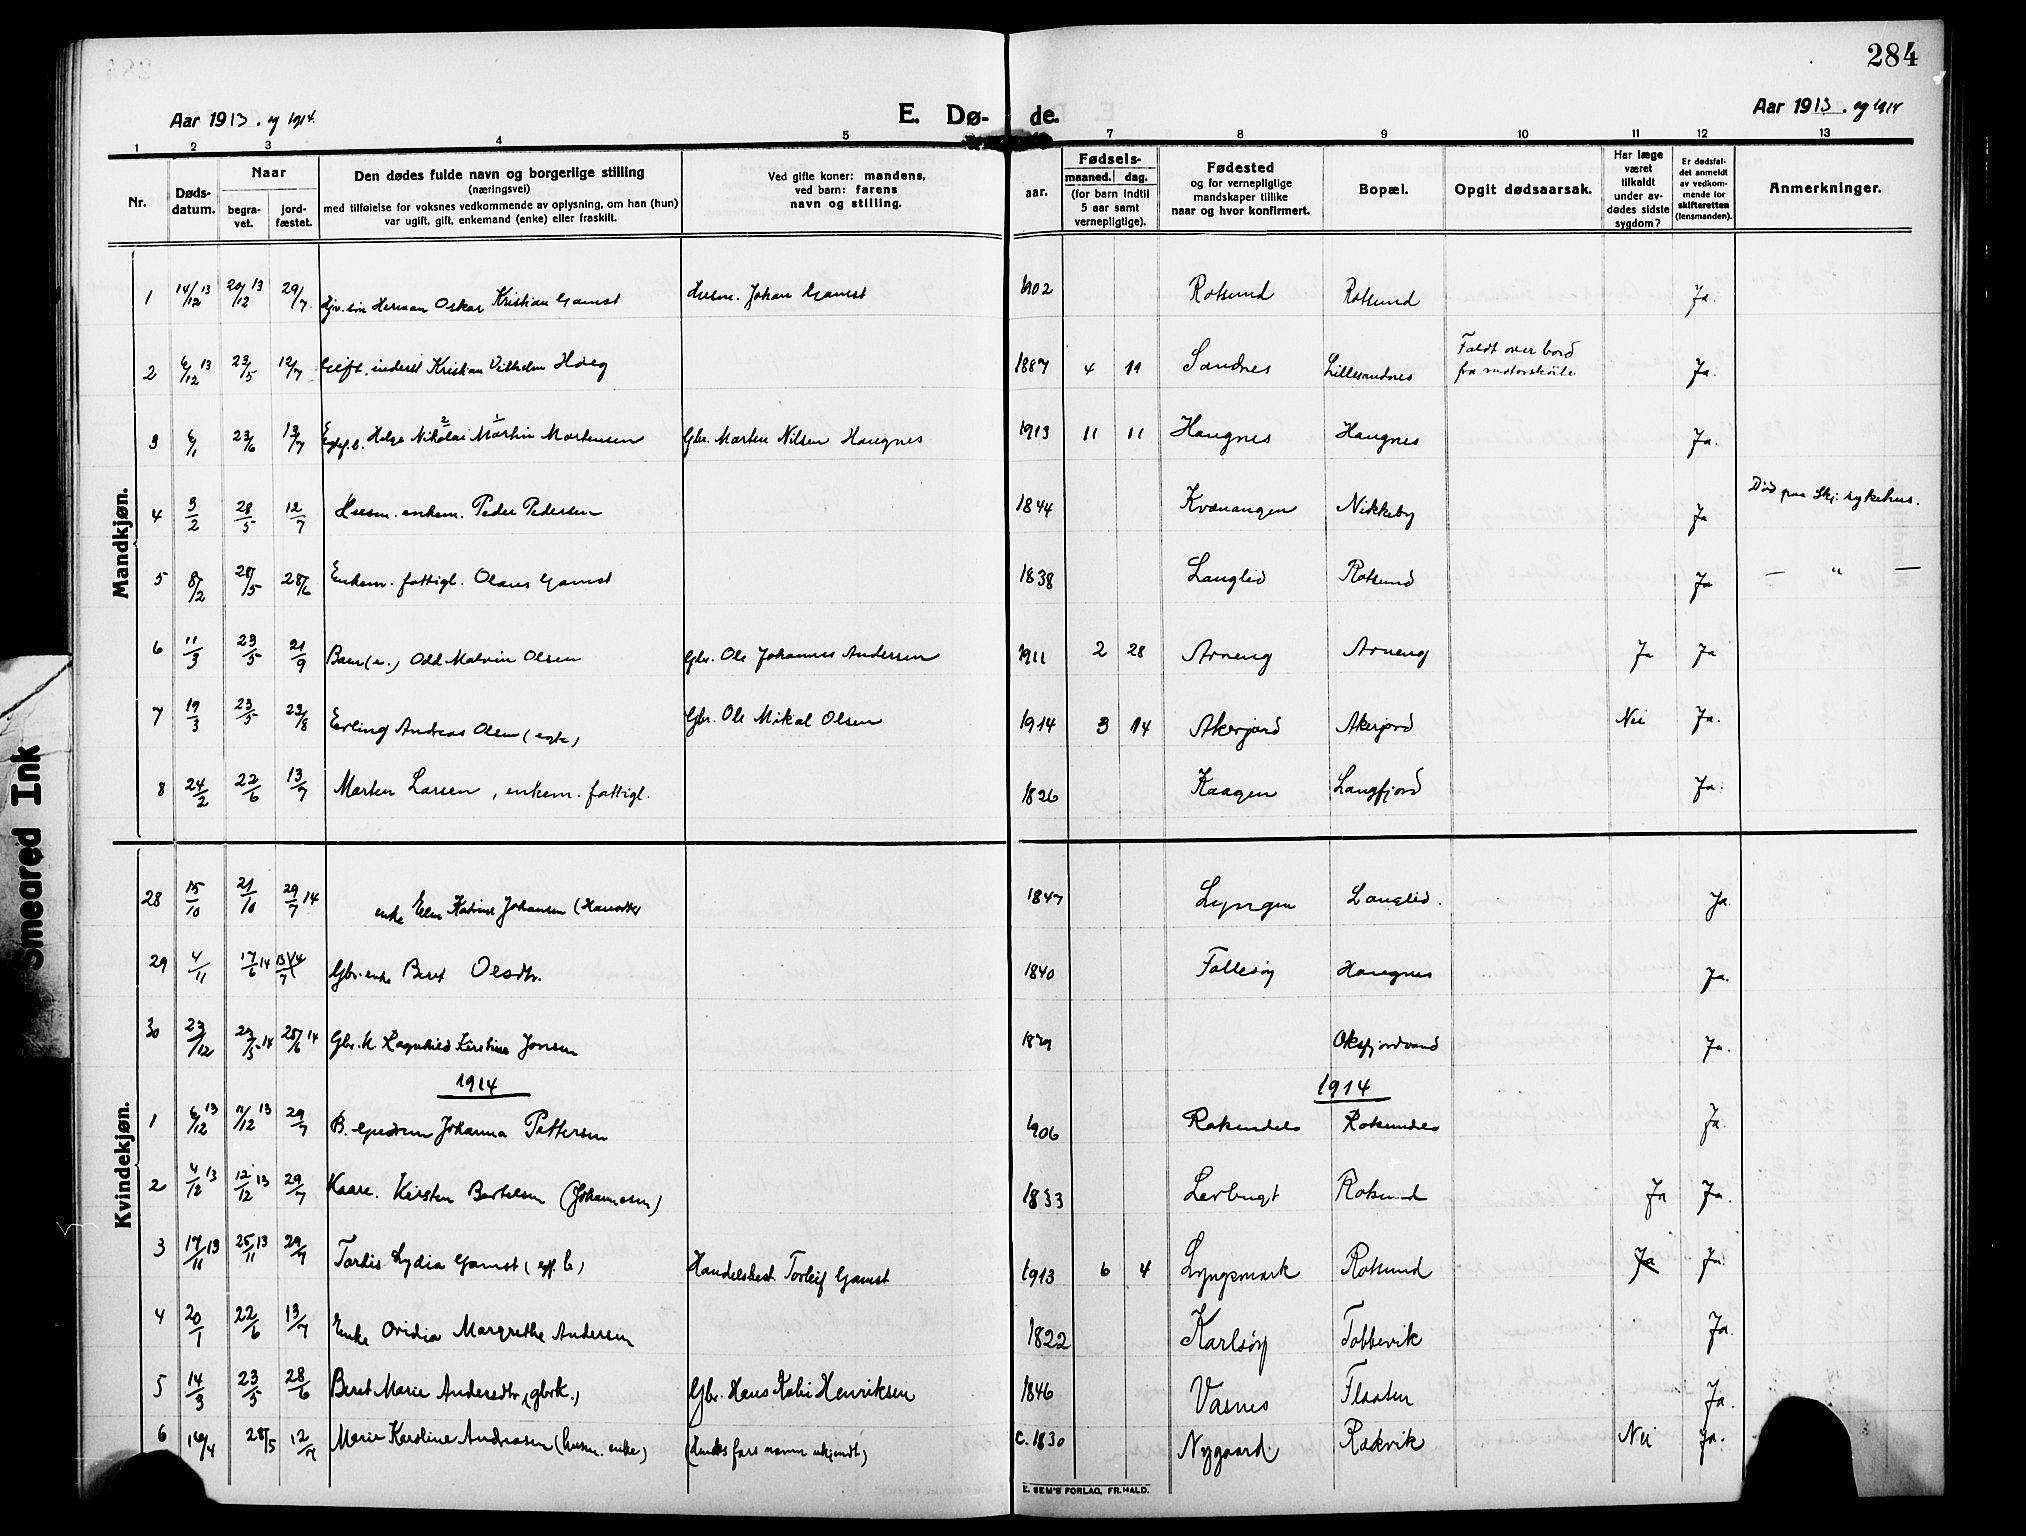 284
Aar 1913. og 1914.
E. Dø-
de.
Aar 1913. og 1914
1 2 3 4 5 7 8 9 10 11 12 13
Nr.
Døds-datum.
Naar
begra-vet.
jord-fæstet.
Den dødes fulde navn og borgerlige stilling
(næringsvei)
med tilføielse for voksnes vedkommende av oplysning, om han (hun)
var ugift, gift, enkemand (enke) eller fraskilt.
Ved gifte koner: mandens,
ved barn: farens
navn og stilling.
Fødsels-
aar.
maaned. dag.
(for barn indtil
5 aar samt
vernepligtige).
Fødested
og for vernepligtige
mandskaper tillike
naar og hvor konfirmert.
Bopæl.
Opgit dødsaarsak.
Har læge
været
tilkaldt
under av-
dødes sidste
sygdom?
Er dødsfal-
det anmeldt
av vedkom-
mende for
skifteretten
(lensmanden).
Anmerkninger.
Mandkjøn.
1 14/12 13 20/12 13 29/7 søn Herman Oskar Kristian Gamst Husm. Johan Gamst 1902 Rotsund Rotsund Ja.
2 6/12 13 23/5 12/7 Gift. inderst Kristian Vilhelm Høeg 1887 4 11 Sandnes Lillesandnes Faldt over bord
fra motorskøite Ja.
3 6/1 23/6 13/7 Helge Nikolai Martin Mortensen Gbr. Morten Nilsen Haugnes 1913 11 11 Haugnes Haugnes Ja.
4 3/2 28/5 12/7 Husm. enkem. Peder Pedersen 1844 Kvænangen Nikkeby Ja Død paa Skj. sykehus.
5 8/2 28/5 28/6 Enkem. fattigl. Olaus Gamst 1838 Langlid Rotsund Ja — " —
6 11/3 23/5 21/9 Barn (e.) Odd Malvin Olsen Gbr. Ole Johannes Andersen 1911 2 28 Arneng Arneng Ja Ja
7 19/3 23/5 23/8 Erling Andreas Olsen (egte) Gbr. Ole Mikal Olsen 1914 3 14 Akerjord Akerjord Nei Ja.
8 24/2 22/6 13/7 Morten Larsen, enkem. fattigl. 1826 Kaagen Langfjord Ja.
Kvindekjøn.
28 15/10 21/10 29/7 14 enke Elen Katrine Johansen (Hansdtr 1847 Lyngen Langlid. Ja.
29 4/11 17/6 14 13/7 14 Gbr. enke Beret Olsdtr. 1840 Follesøy Haugnes Ja.
30 23/12 23/5 14 28/6 14 Gbr. k. Ragnhild Kirstine Jonsen 1879 Oksfjordvand Ja.
1914 1914
1 6/12 13 11/12 13 29/7 B. Gudrun Johanna Pettersen 1906 Rotsundelv Rotsundelv Ja
2 4/12 13 12/12 13 29/7 Kaare. Kirsten Bertelsen (Johannesen) 1833 Lerbugt Rotsund Ja Ja.
3 17/11 13 25/11 13 29/7 Tordis Lydia Gamst Handelsbest. Torleif Gamst 1913 6 4 Lyngsmark Rotsund Ja Ja.
4 20/1 22/6 13/7 Enke Ovidia Margrethe Andersen 1822 Karlsøy Tobbevik Ja.
5 14/3 23/5 28/6 Beret Marie Andersdtr. (gbrk.) Gbr. Hans Henriksen 1846 Vasnes Flaaten Ja.
6 16/4 28/5 12/7 Marie Karoline Andreasen (husm. enke) (Hendes fars navn ukjendt) c. 1830 Nygaard Rakvik Nei Ja.
E. SEM'S FORLAG, FR.HALD.
Smeared Ink